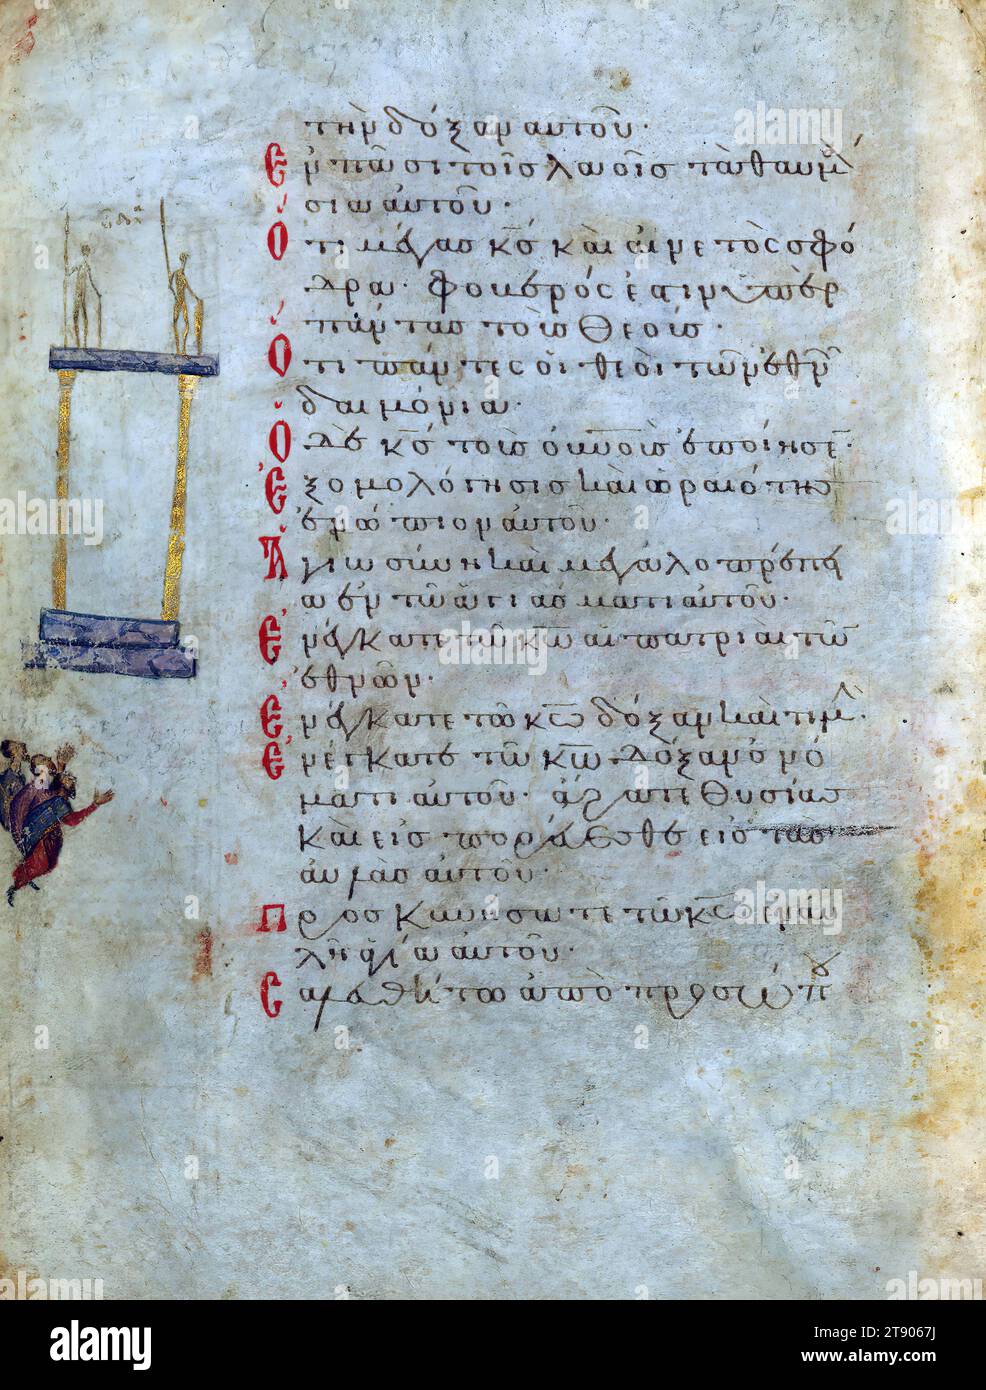 τὴν δόξαν αυτοῦ·
Εν πᾶσι τοῖς λαοῖς τὰ θαυμά
σια ἀυτοῦ·
Ότι μέγας κς καὶ αἰνετὸς σφό
δρα· φοβερός εστιν ὑπὲρ
πάντας τοὺς Θεούς·
Ότι πάντες οἱ θεοὶ τῶν εθν
δαιμόνια·
Ο δὲ κς τοὺς ουνοὺς εποίησεν·
Εξομολόγησις καὶ ὡραιότης
ενώπιον αυτοῦ·
Αγιωσύνη καὶ μεγαλοπρέπει
α εν τῶ ἁγιάσματι αυτοῦ·
Ενέγκατε τῶ κω αἱ πατριαι τῶν
εθνῶν·
Ενέγκατε τῶ κω δόξαν καὶ τιμ·
Ενέγκατε τῶ κω δόξαν ὀνό
ματι αυτοῦ· ἄρατε θυσίας
καὶ εισπορέυεσθε εις τὰς
αυλὰς αυτοῦ·
Προσκυνήσατε τῶ κω εν αυ
λῆ ἁγία αυτοῦ·
Σαλευθήτω ἀπὸ προσώπου
alamy
Image ID: 2T9067J
www.alamy.com